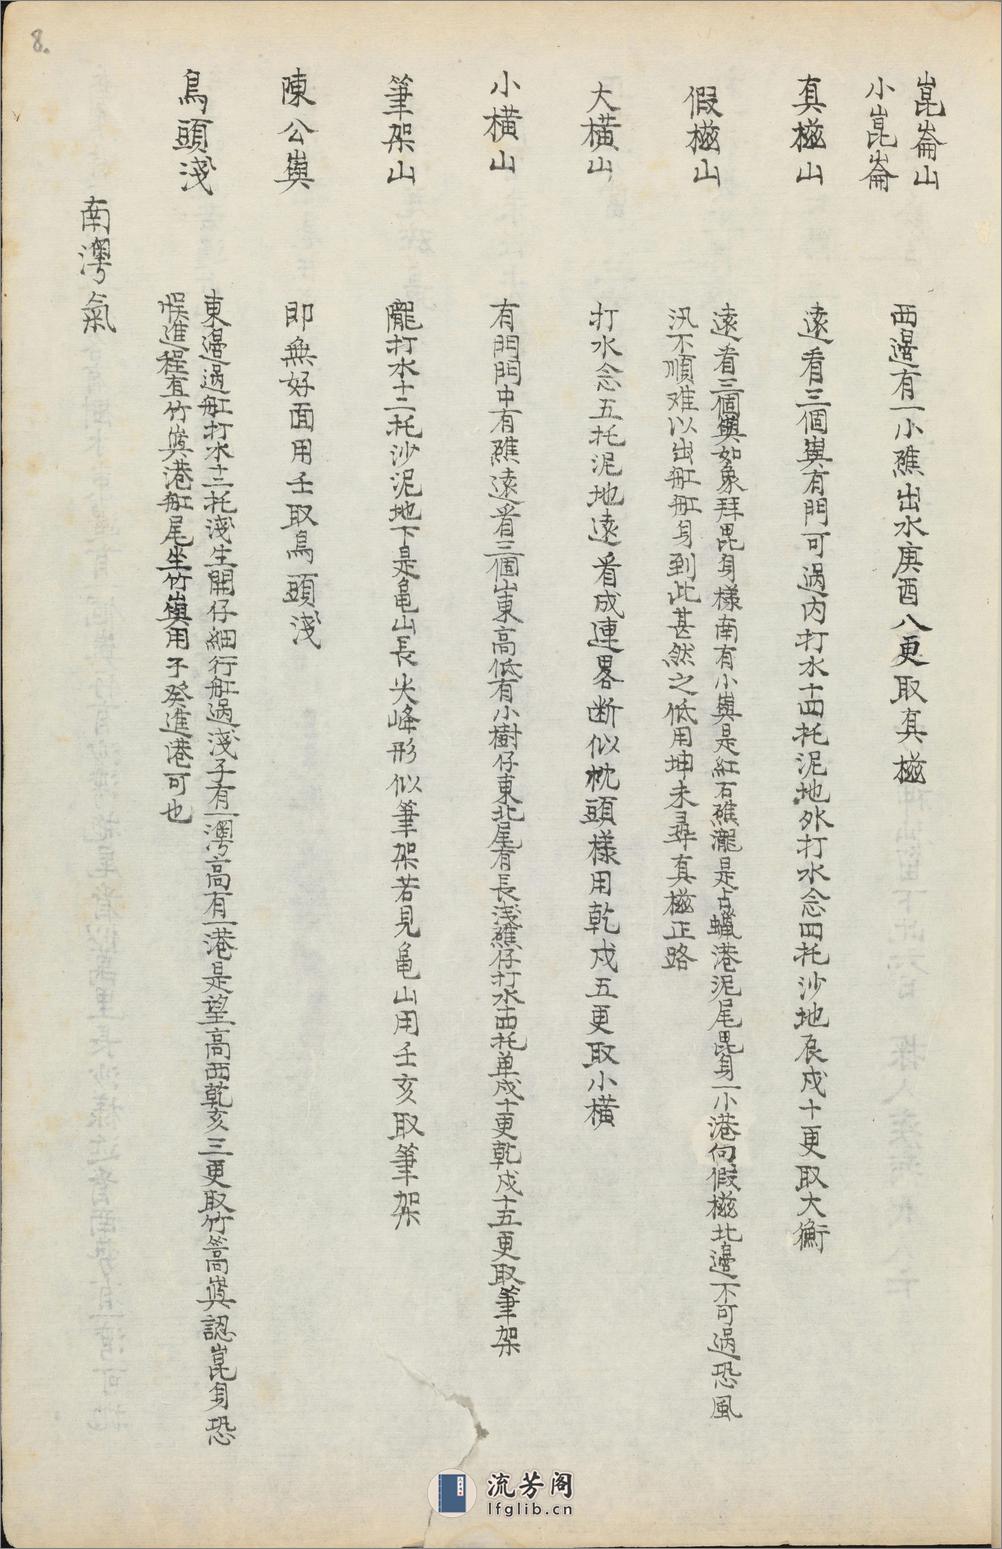 8.
崑崙山
小崑崙
西邉有一小礁出水庚酉八更取真磁
真磁山
遠看三個㠘有門可過内打水十四托泥地外打水念四托沙地辰戍十更取大衡
假磁山
遠看三個㠘如象拜毘身樣南有小㠘是紅石礁瀧是占蠟港泥尾毘身一小港向假磁北邉不可過恐風
汛不順难以出舡舡身到此甚然之低用坤未尋真磁正路
大橫山
打水念五托泥地遠看成連畧断似枕頭樣用乾戍五更取小橫
小橫山
有門門中有礁遠看三個山東高低有小樹仔東北尾有長淺礁仔打水十四托单戍十更乾戍十五更取筆架
筆架山
隴打水十二托沙泥地下是龜山長尖峰形似筆架若見龜山用壬亥取筆架
陳公㠘
即無好面用壬取鳥頭淺
鳥頭淺
東邉過舡打水十二托淺生開仔細行舡過淺子有一澚高有一港是望高西乾亥三更取竹篙㠘認崑身恐
悮進程直竹㠘港舡尾坐竹㠘用子癸進港可也
南澚氣
流芳阁
lfglib.cn